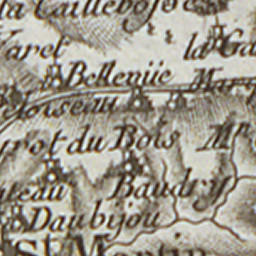 la Cailleboſse
Varet
la Ga
Belleuüe
Mar
eloiseau
rot du Bois
Mn
teau
Baudry
Daubijou
St Martin